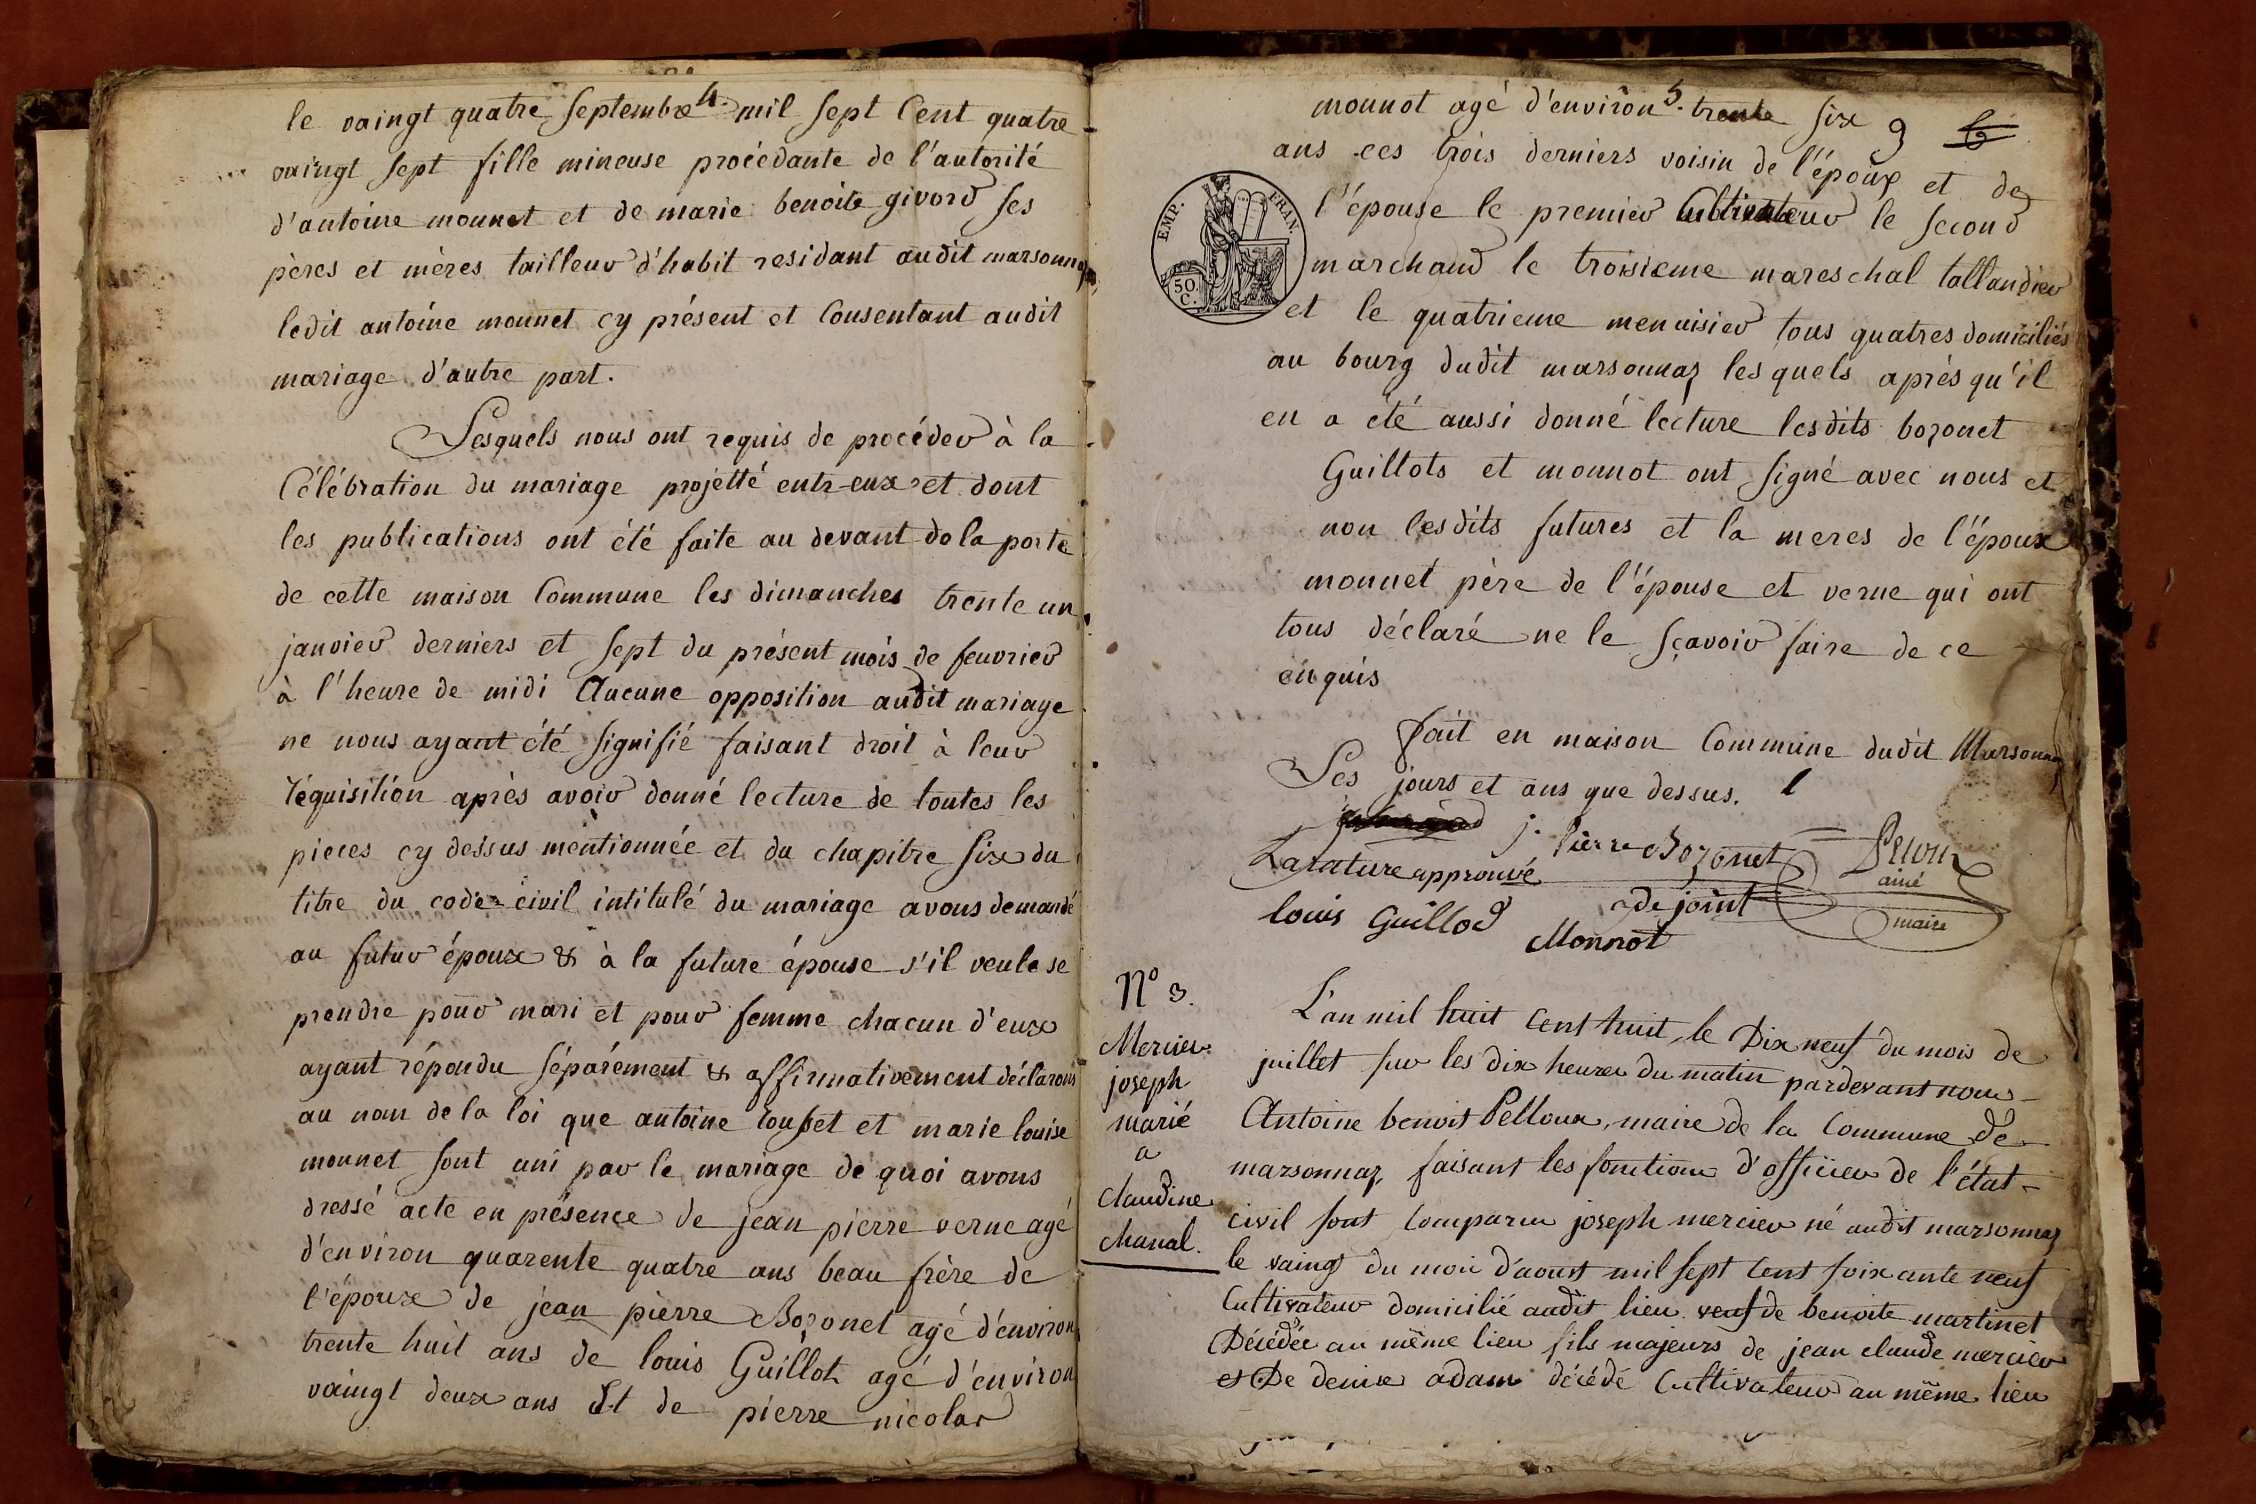 4.
le vaingt quatre septembre mil sept Cent quatre
vaingt sept fille mineuse procédante de l'autorité
d'antoine monnet et de marie benoite givord ses
pères et mères tailleur d'habit residant audit marsonnaz
ledit antoine monnet cy présent et Consentant audit
mariage d'autre part.
Lesquels nous ont requis de procéder à la
Célébration du mariage projetté entr-eux et dont
les publications ont été faite au devant de la porte
de cette maison Commune les dimanches trente un
janvier derniers et sept du présent mois de feuvrier
à l'heure de midi Aucune opposition audit mariage
ne nous ayant été signifié faisant droit à leur
réquisition après avoir donné lecture de toutes les
pieces cy dessus mentionnée et du chapitre six du
titre du code civil intitulé du mariage avons demandé
au futur époux & à la future épouse s'il veule se
prendre pour mari et pour femme chacun d'eux
ayant répondu séparément & affirmativement déclarons
au nom de la loi que antoine et marie louise
monnet sont uni par le mariage de quoi avons
dressé acte en présence de jean pierre verne agé
d'environ quarente quatre ans beau frère de
l'époux de jean pierre Bozonet agé d'environ
trente huit ans de louis Guillot agé d'environ
vaingt deux ans Et de pierre nicolas
5.
monnot agé d'environ trente six
9
ans ces trois derniers voisin de l'époux et de
l'épouse le premier Cultivateur le second
EMP. FRAN.
50 C.
marchand le troisieme mareschal tallandier
et le quatrieme menuisier tous quatres domiciliés
au bourg dudit marsonnaz les quels après qu'il
en a été aussi donné lecture lesdits bozonet
Guillots et monnot ont signé avec nous et
non lesdits futures et la meres de l'époux
monnet père de l'épouse et verne qui ont
tous déclaré ne le sçavoir faire de ce
enquis
fait en maison Commune dudit Marsonnaz
Les jours et ans que dessus.
j. Pierre Bozonet
La rature approuvé
ainé
adejoint
maire
louis Guillod
Monnot
N° 3.
Mercier
joseph
marié
a
Claudine
Chanal.
L'an mil huit cent huit, le Dix neuf du mois de
juillet sur les dix heures du matin pardevant nous
Antoine benoit Pelloux, maire de la Commune de
marsonnaz, faisant les fonctions d'officier de l'état
civil sont Comparu joseph mercier né audit marsonnaz
le vaingt du mois d'aoust mil sept Cent soixante neuf
Cultivateur domicilié audit lieu veuf de benoite martinet
Décédée au même lieu fils majeurs de jean claude mercier
et De denise adam décédé Cultivateur au même lieu